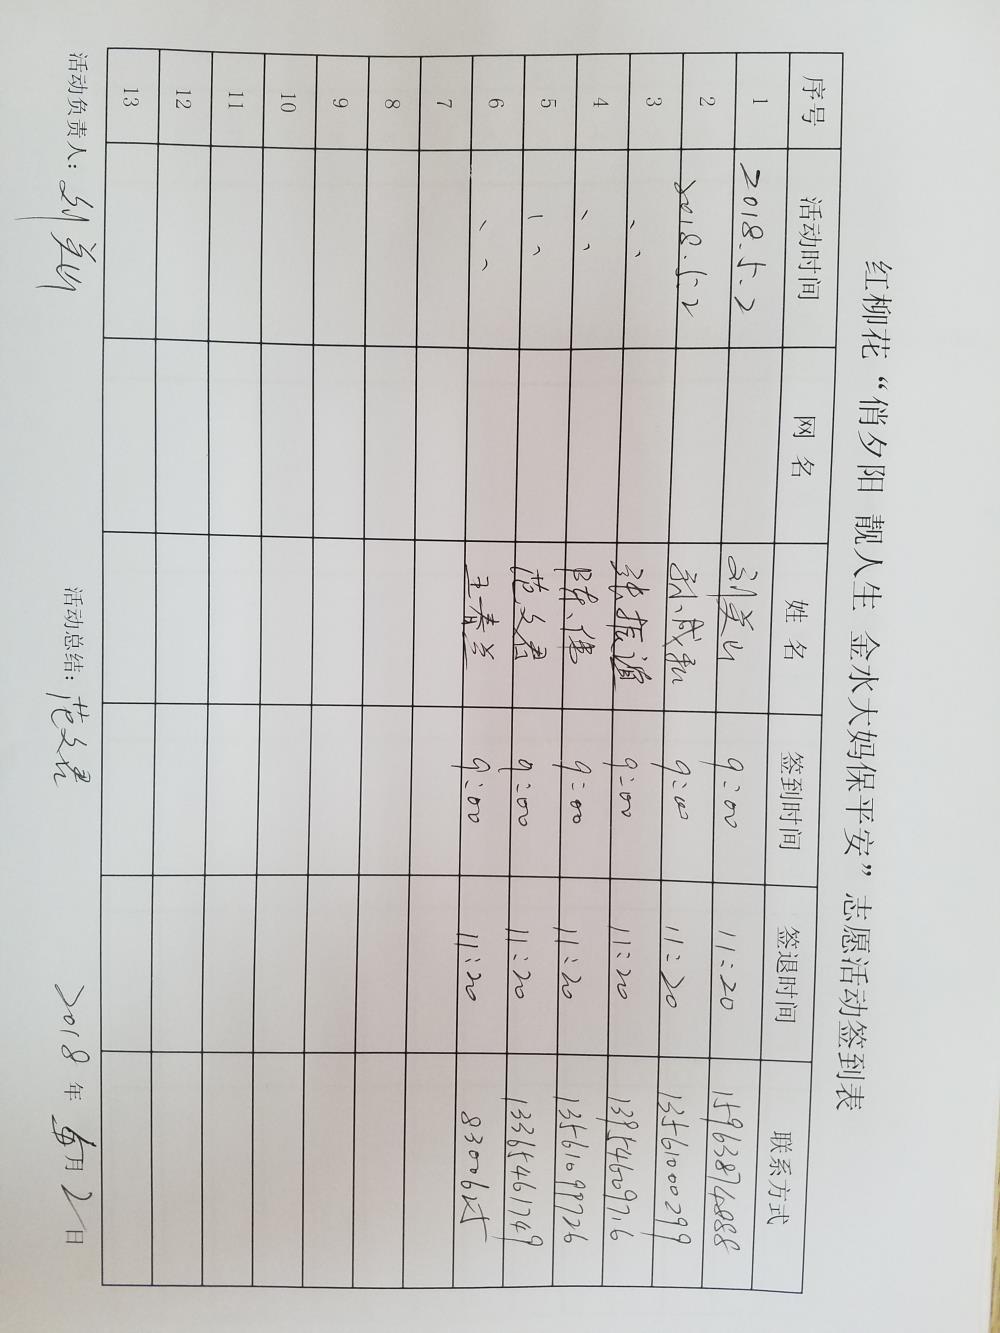 红柳花“俏夕阳 靓人生 金水大妈保平安”志愿活动签到表
序号 活动时间 网 名 姓 名 签到时间 签退时间 联系方式
1 2018.5.2 刘美山 9:00 11:20 15963874888
2 2018.5.2 孙成和 9:00 11:20 13561000299
3 、、 张振谊 9:00 11:20 13954609716
4 、、 陈伟 9:00 11:20 13561099726
5 、、 范文君 9:00 11:20 13365461749
6 、、 王春兰 9:00 11:20
7
8
9
10
11
12
13
活动负责人: 刘美山 活动总结: 范文君 2018 年 5 月 2 日